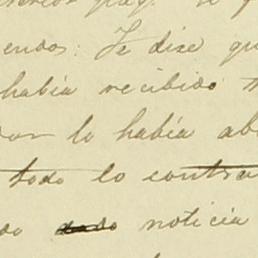 endos: Te dixe qu
había recibido
dor lo había ab
todo lo contra
do dado noticia